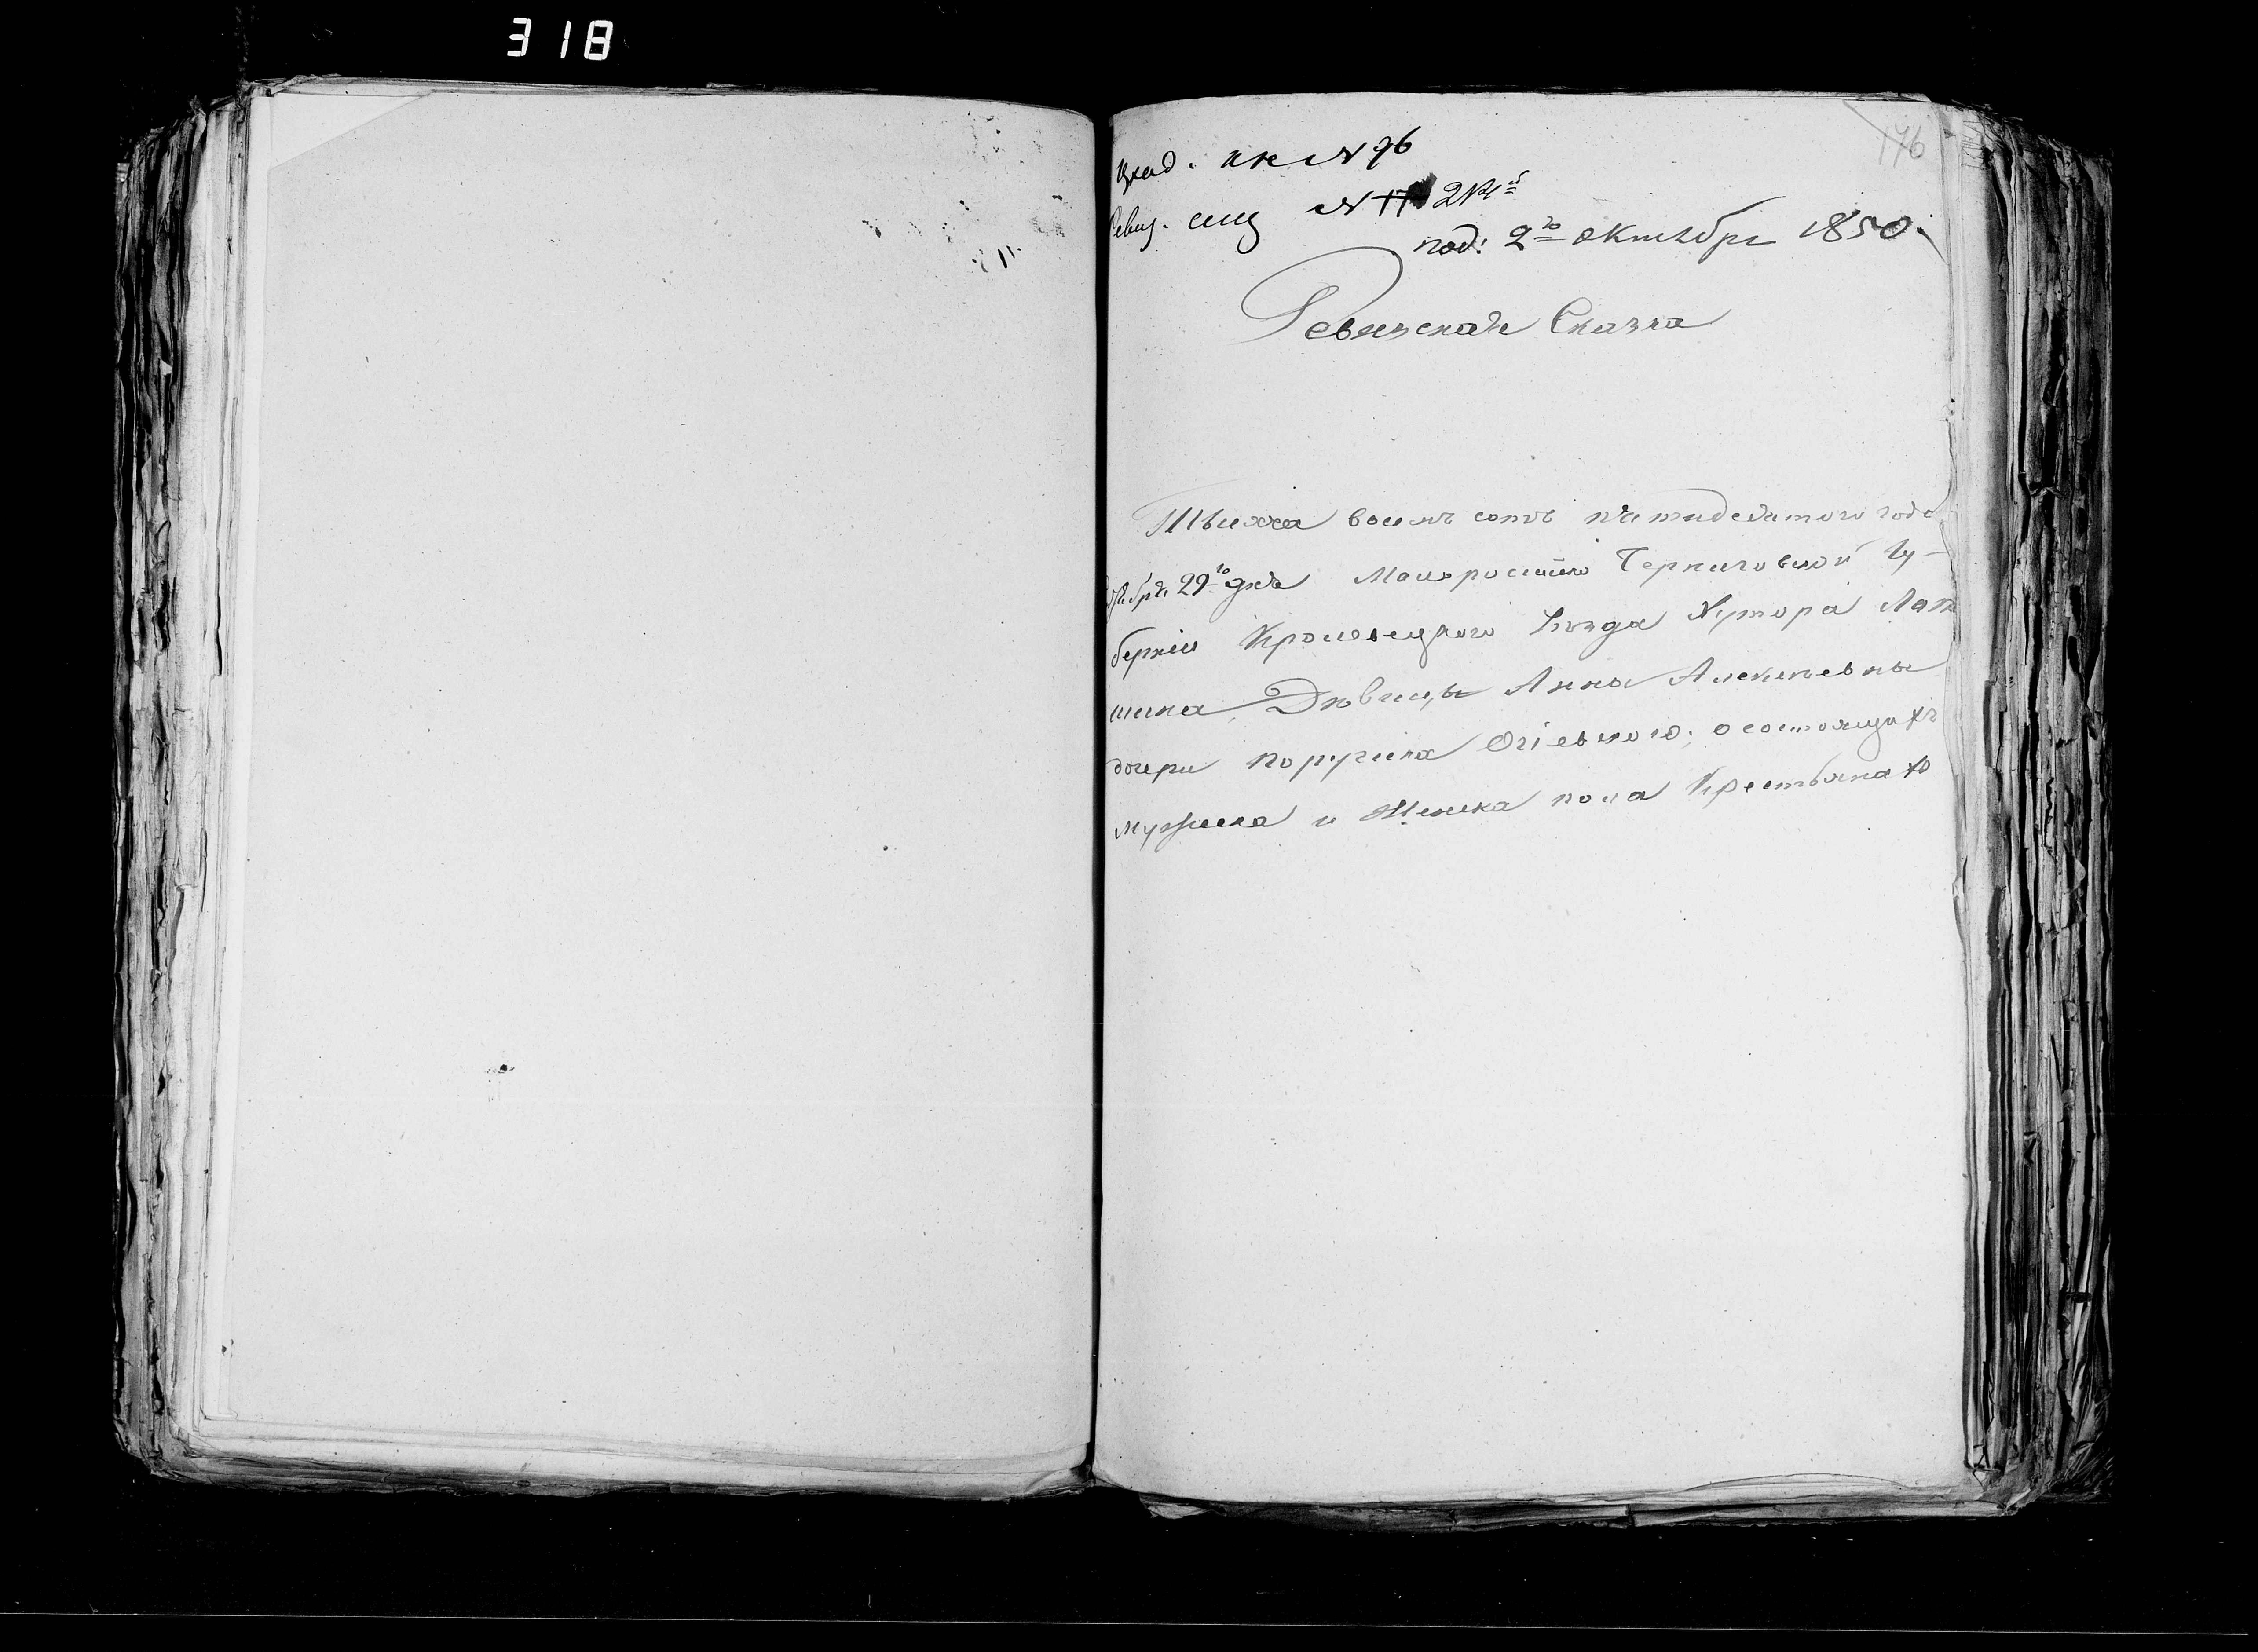 318
196
влад. кн № 96
Ревиз. сищ № 17 2й части
под: 2го октября 1850.
Ревизская Сказка
Тысяча восемь сотъ пятидесятого года
тября 29го дня Малороссійско Черниговской Гу-
берніи Кролевецкого Уѣзда Хутора Лап
шина, Дѣвицы Анны Алексѣевны
дочери поручика Огіевского; о состоящихъ
мужеска и Женска пола Крестьянахъ